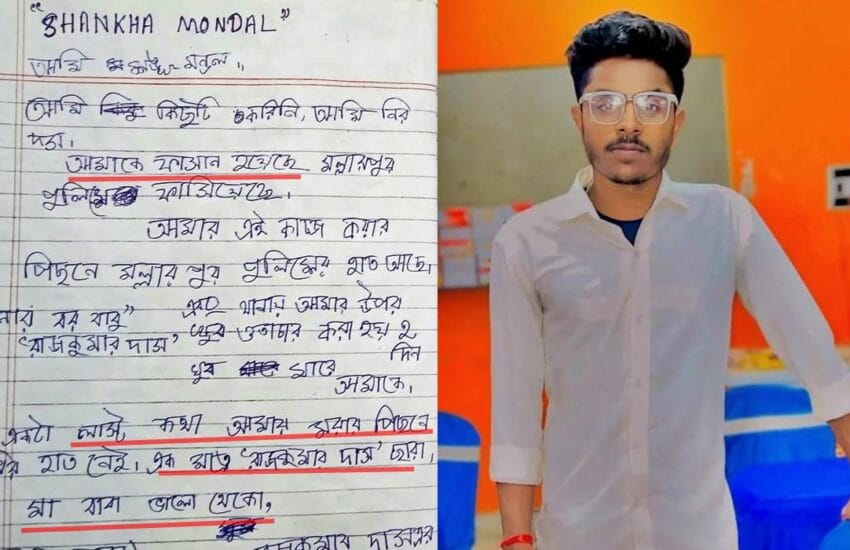 "SHANKHA MONDAL"
আমি মন্ডল।
আমি কিছুই করিনি, আমি নির
দশ।
আমাকে ফাসান হয়েছে মল্লারপুর
পুলিশে ফাসিয়েছে।
আমার এই কাজ করার
পিছনে মল্লারপুর পুলিশের হাত আছে।
বর বাবু" এবং থানায় আমার উপর
'রাজকুমার দাস' করা হয় ২
দিন
খুব মারে
আমাকে।
একটা লাস্ট কথা আমার মরার পিছনে
হাত নেই। এক মাত্র 'রাজকুমার দাস' ছারা,
মা বাবা ভালো থেকো,
রাজকুমার